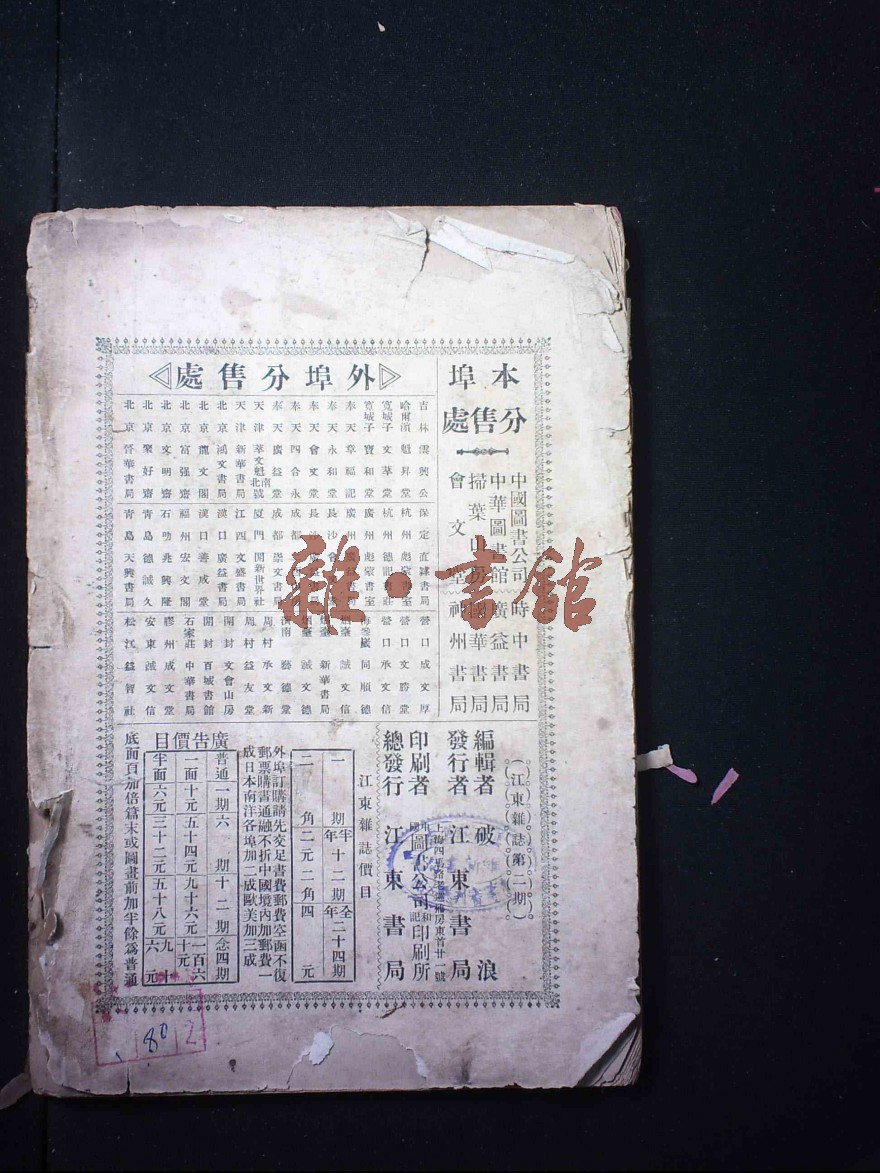 本埠分售處
中國圖書公司
中華圖書館
掃葉山房
會文堂
時中書局
廣益書局
國華書局
神州書局
外埠分售處
吉林雲興公
哈爾濱魁昇堂
寬城子文華堂
寬城子寶和堂
奉天章福記
奉天永和堂
奉天會文堂
奉天四合永
奉天廣益堂
天津萃文魁北南號
天津新華書局
北京鴻文書局
北京龍文閣
北京富强齋
北京文明齋
北京聚好齋
北京晉華書局
保定直隸書局
杭州彪蒙書室
杭州德記
廣州彪蒙書室
廣州
長沙會
長沙
成都
成都崇文書局
厦門開新世界社
江西文盛書局
漢口廣益書局
漢口善成堂
福州宏文閣
石功兆興隆
青島德誠久
青島天興書局
營口成文厚
營口文勝堂
營口承文信
海參崴同順德
烟臺誠文信
烟臺新華書局
烟臺誠文德
濟南藝德堂
周村承文新
周村益友堂
開封文會山房
開封百城書館
石家莊中華書局
膠州成文堂
安東誠文信
松江益智社
（江東雜誌第一期）
編輯者 破浪
發行者 江東書局
上海四馬路 房東首廿一號
印刷者 圖書公司和記印刷所
總發行 江東書局
江東雜誌價目
一期 半年十二期 全年二十四期
二角 二元二角 四元
外埠訂購請先交足書費郵費空函不復
郵票購書通融不折中國境內加郵費一
成日本南洋各埠加二成歐美加三成
廣告價目
普通 一期 六期 十二期 念四期
一面 十元 五十四元 九十六元 一百六十元
半面 六元 三十二元 五十八元 九十六元
底面頁加倍篇末或圖畫前加半餘爲普通
雜·書館
80 2